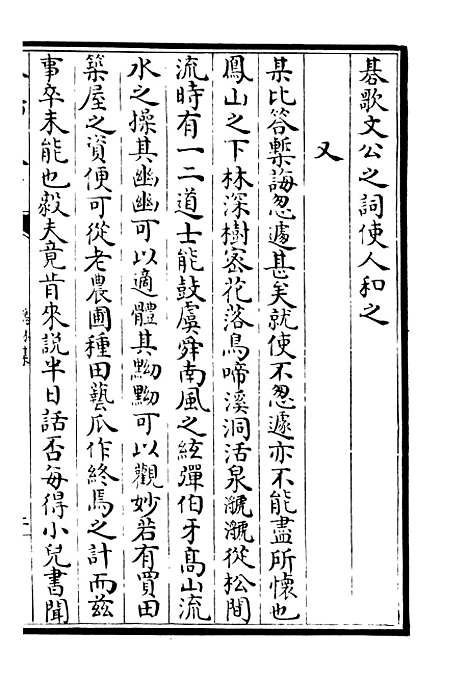 碁歌文公之詞使人和之
又
某比答槧誨怱遽甚矣就使不怱遽亦不能盡所懷也
鳳山之下林深樹宻花落鳥啼溪洞活泉㶁㶁從松間
流時有一二道士能鼓虞舜南風之絃彈伯牙髙山流
水之操其幽幽可以適體其黝黝可以觀妙若有買田
築屋之資便可從老農圃種田藝瓜作終焉之計而兹
事卒未能也毅夫竟肯來説半日話否每得小兒書聞